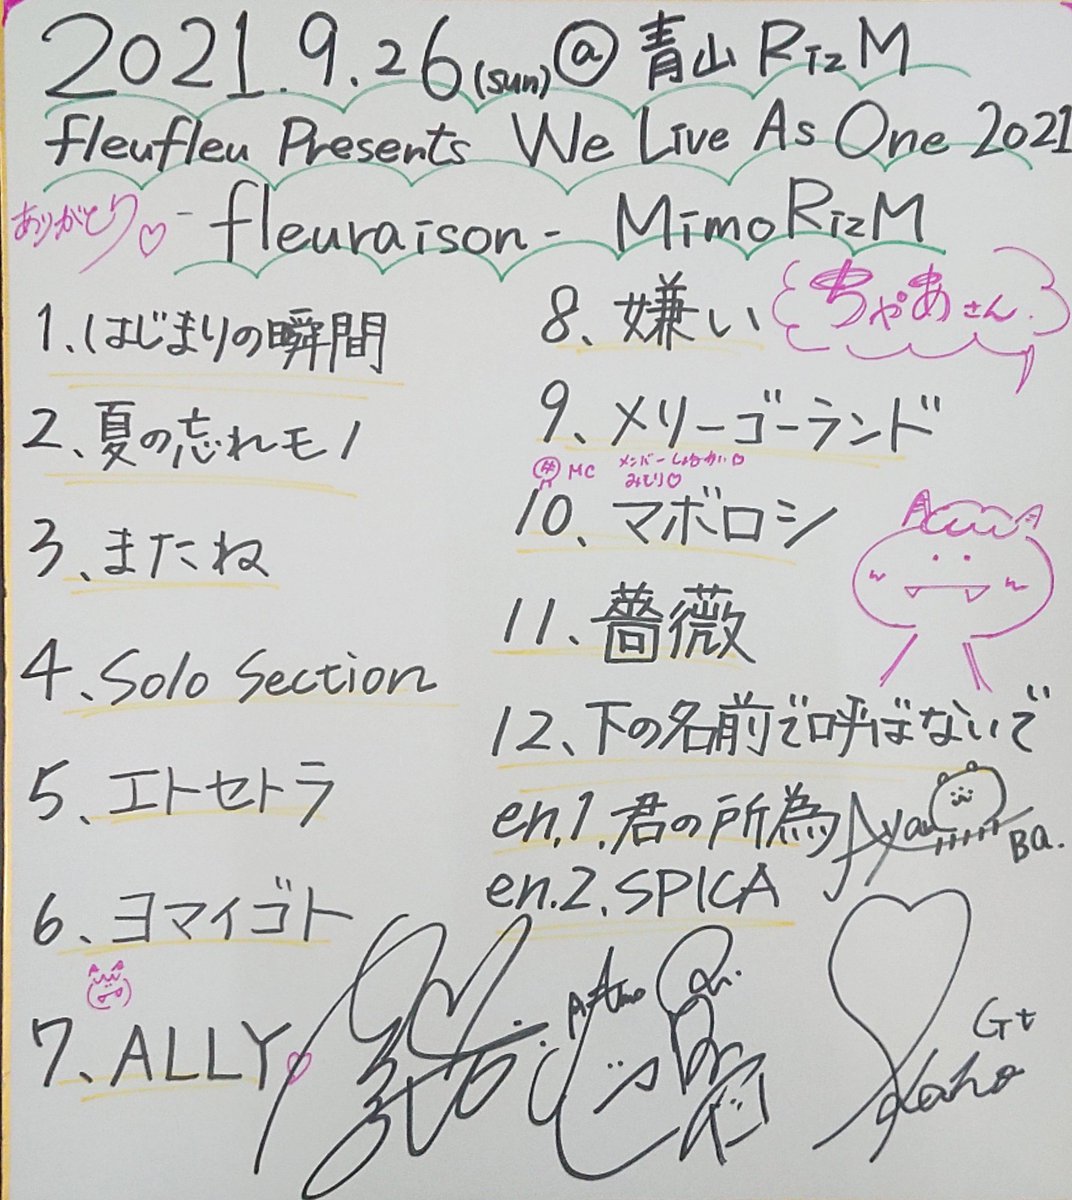 2021.9.26(sun)@青山RizM
fleufleu Presents We Live As One 2021
ありがとう♡
-fleuraison- MimoRizM
1、はじまりの瞬間
2、夏の忘れモノ
3、またね
4、Solo Section
5、エトセトラ
6、ヨマイゴト
7、ALLY♡
8、嫌い
ちゃあさん.
9、メリーゴーランド
MC メンバーしょうかい♡
みもり♡
10、マボロシ
11、薔薇
12、下の名前で呼ばないで
en.1.君の所為
Aya
Ba.
en.2.SPICA
Gt
Kaho